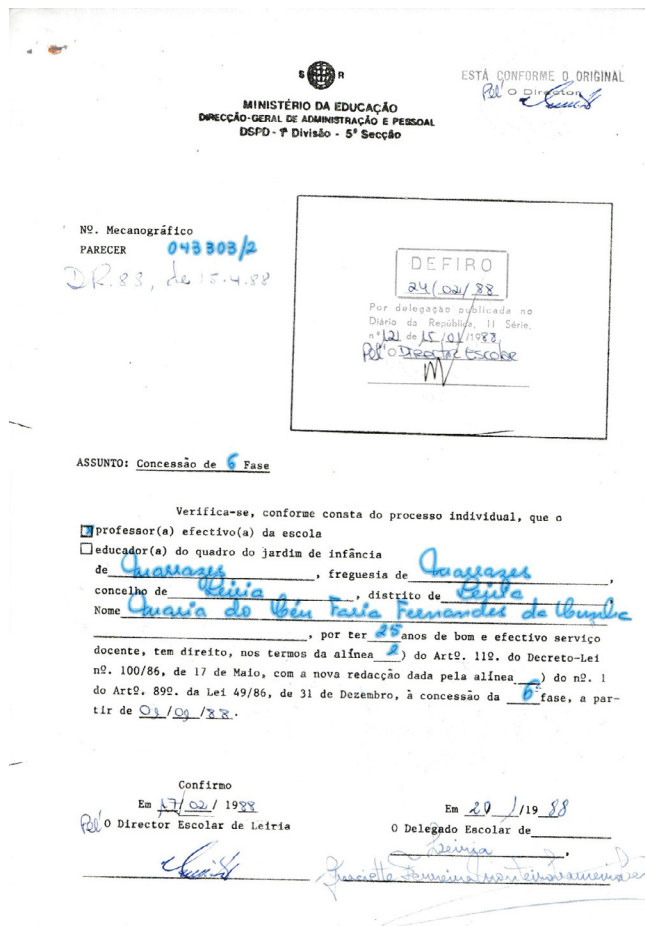 S R
ESTÁ CONFORME O ORIGINAL
Pel' O Director
MINISTÉRIO DA EDUCAÇÃO
DIRECÇÃO-GERAL DE ADMINISTRAÇÃO E PESSOAL
DSPD - 1ª Divisão - 5ª Secção
Nº. Mecanográfico
PARECER 043303/2
D.R. 88, de 15.4.88
DEFIRO
24/02/88
Por delegação publicada no
Diário da República, II Série,
nº 121 de 15/01/1988
Pel' O Director Escolar
ASSUNTO: Concessão de 6 Fase
Verifica-se, conforme consta do processo individual, que o
professor(a) efectivo(a) da escola
educador(a) do quadro do jardim de infância
de Marrazes, freguesia de Marrazes,
concelho de Leiria, distrito de Leiria
Nome Maria do Céu Faria Fernandes da Cunha
, por ter 25 anos de bom e efectivo serviço
docente, tem direito, nos termos da alínea ) do Artº. 11º. do Decreto-Lei
nº. 100/86, de 17 de Maio, com a nova redacção dada pela alínea ) do nº. 1
do Artº. 89º. da Lei 49/86, de 31 de Dezembro, à concessão da 6 fase, a par-
tir de /88.
Confirmo
Em 17/02/1988
Pel' O Director Escolar de Leiria
Em 20 / /19 88
O Delegado Escolar de
Leiria,